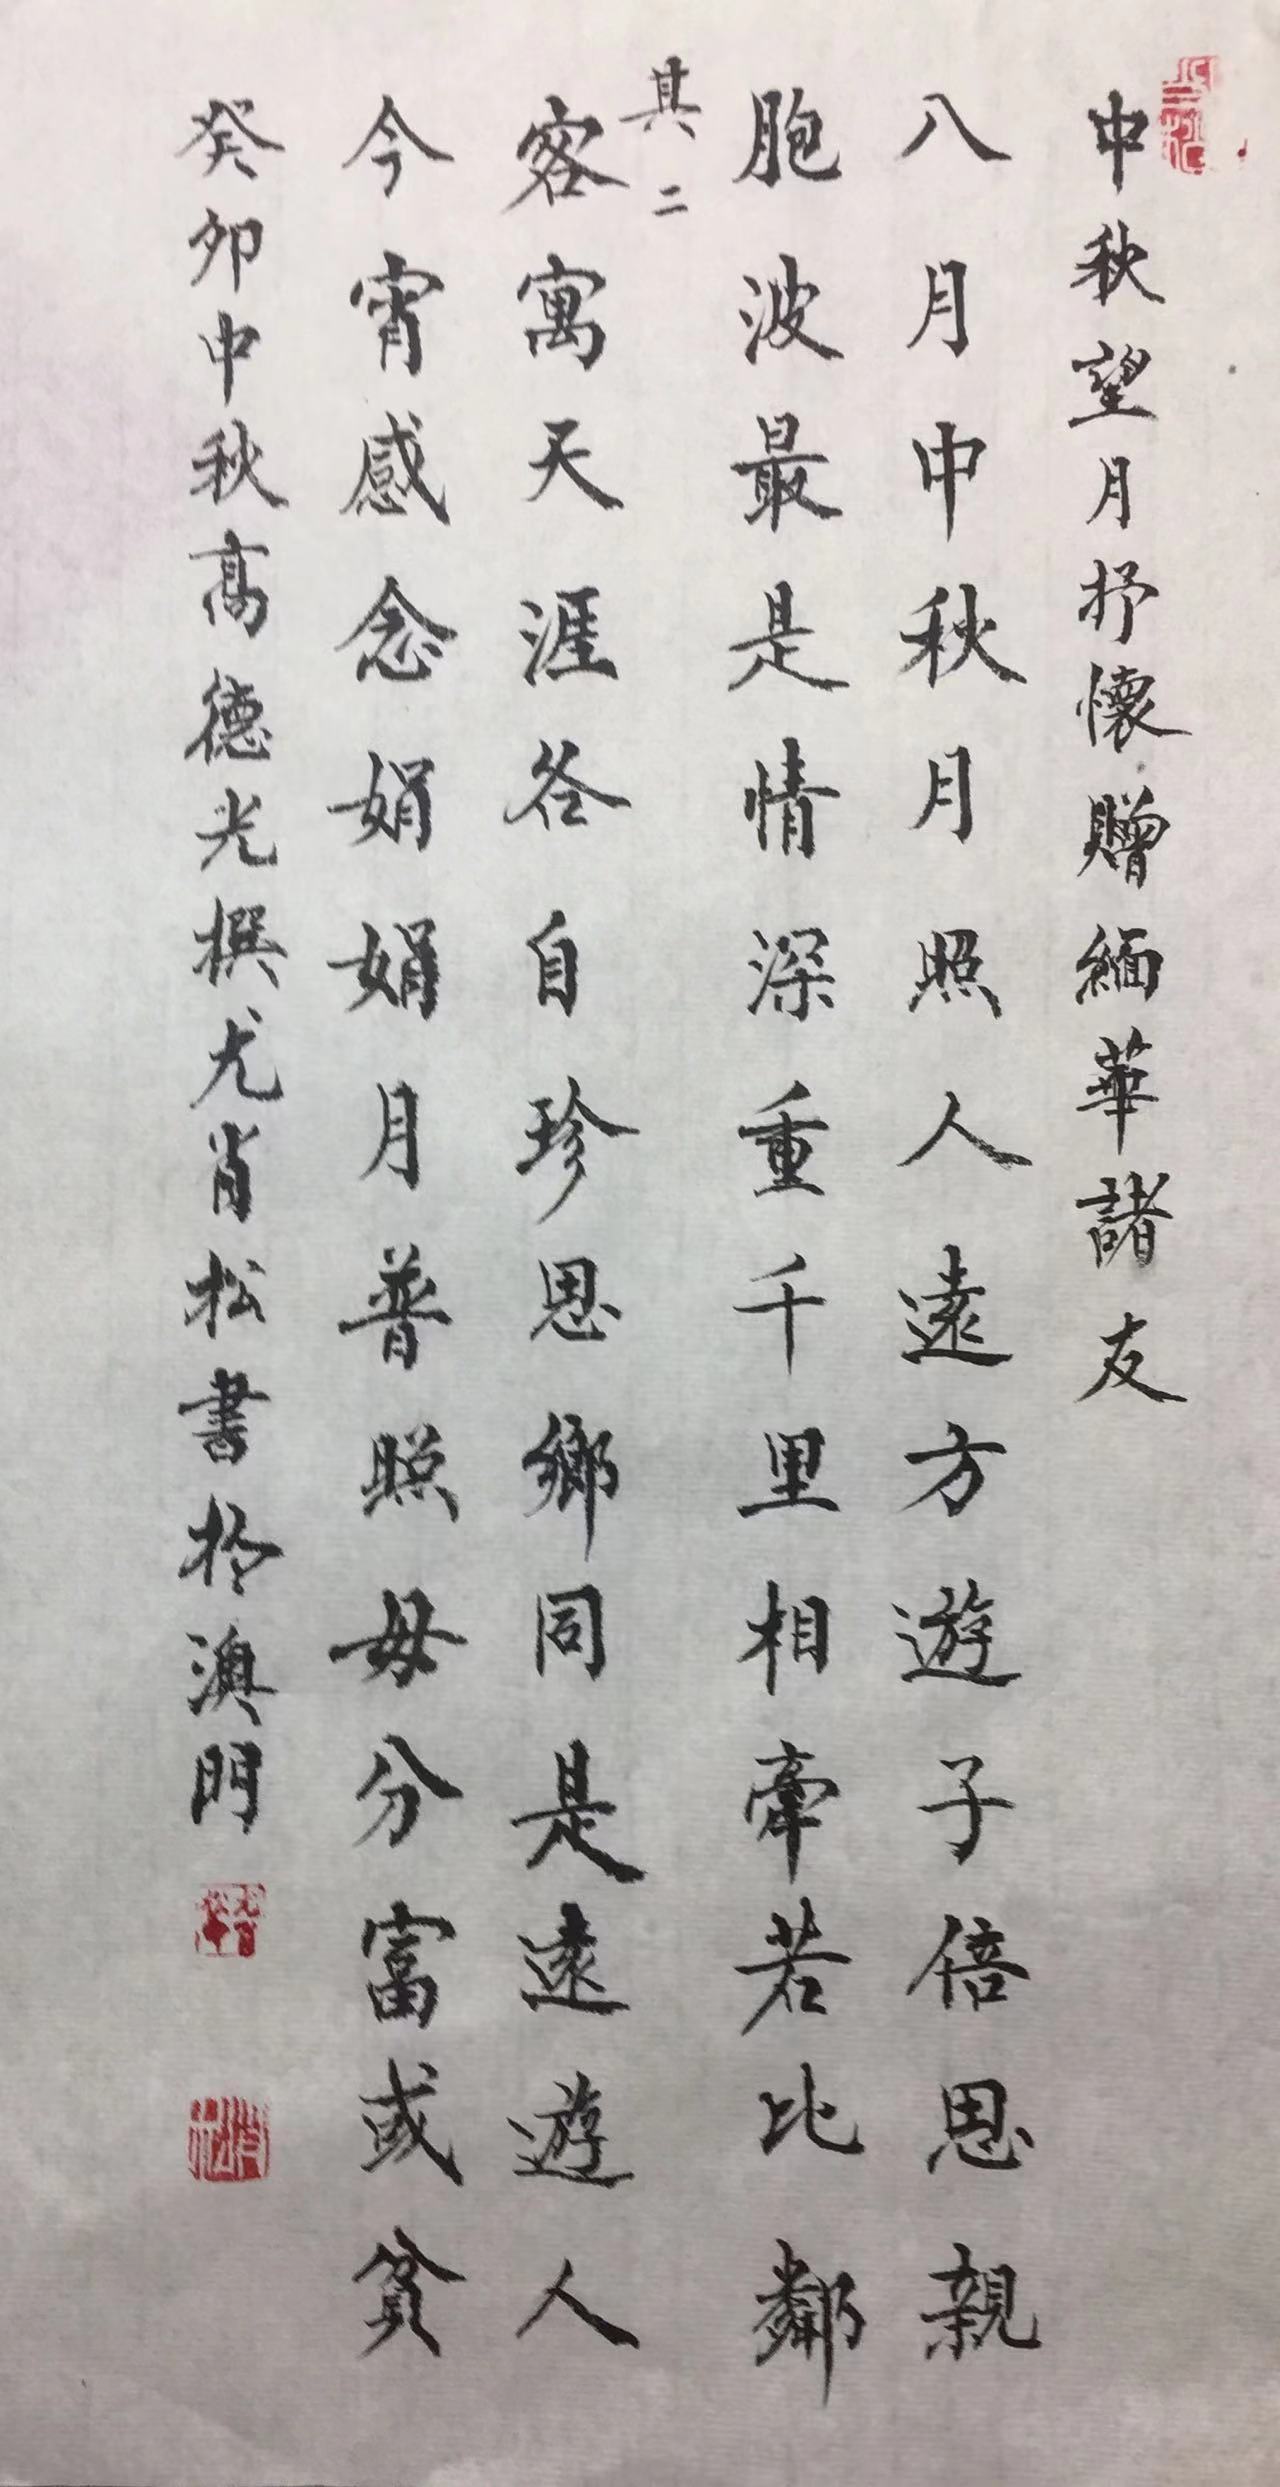 中秋望月抒懷贈緬華諸友
八月中秋月照人遠方遊子倍思親
胞波最是情深重千里相牽若比鄰
其二
客寓天涯各自珍思鄉同是遠遊人
今宵感念娟娟月普照毋分富或貧
癸卯中秋高德光撰尤肖松書於澳門